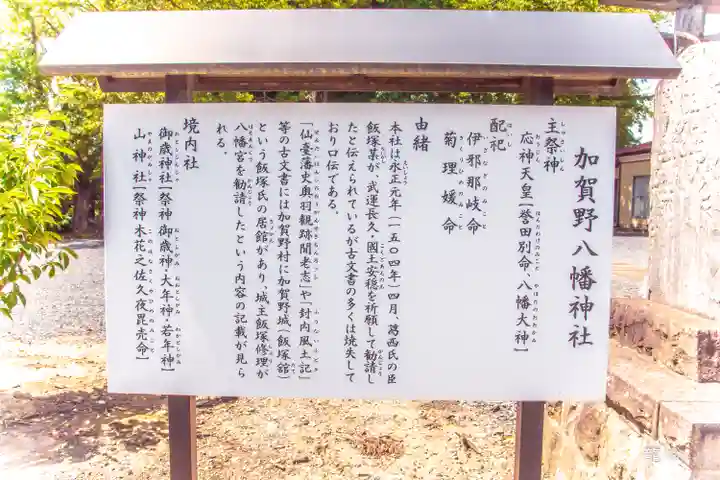 加賀野八幡神社
主祭神
応神天皇【誉田別命、八幡大神】
配祀
伊邪那岐命
菊理媛命
由緒
本社は永正元年(一五〇四年)四月、葛西氏の臣
飯塚某が、武運長久・國土安穏を祈願して勧請し
たと伝えられているが古文書の多くは焼失して
おり口伝である。
「仙臺藩史奥羽観跡聞老志」や「封内風土記」
等の古文書には加賀野村に加賀野城(飯塚舘)
という飯塚氏の居館があり、城主飯塚修理が
八幡宮を勧請したという内容の記載が見ら
れる。
境内社
御歳神社【祭神 御歳神・大年神・若年神】
山神社【祭神 木花之佐久夜毘売命】